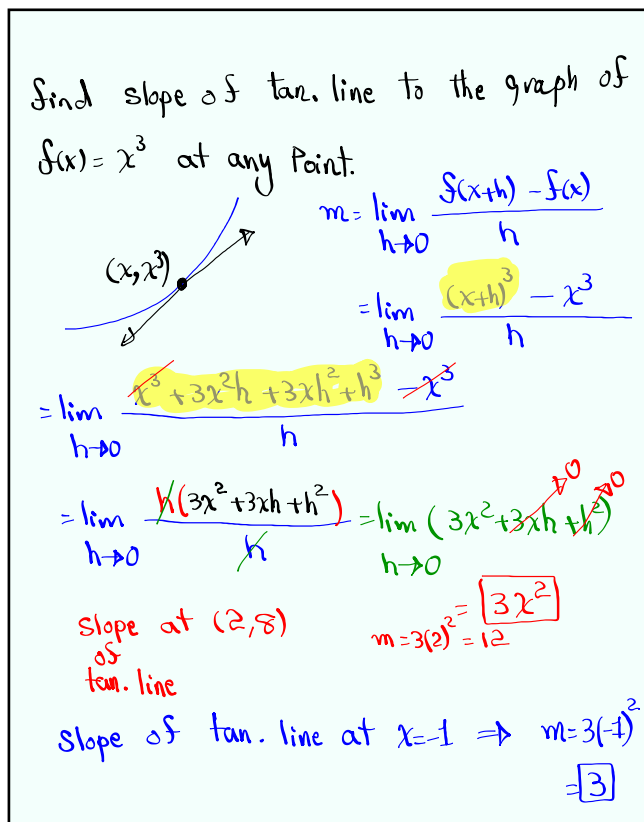 find slope of tan. line to the graph of
f(x) = x³ at any Point.
m = lim h→0 f(x+h) - f(x) / h
(x, x³)
= lim h→0 (x+h)³ - x³ / h
= lim h→0 x³ + 3x²h + 3xh² + h³ - x³ / h
= lim h→0 h(3x² + 3xh + h²) / h = lim h→0 (3x² + 3xh + h²) 0 0
= 3x²
slope at (2,8) m = 3(2)² = 12
of
tan. line
slope of tan. line at x=-1 ⇒ m = 3(-1)²
= 3